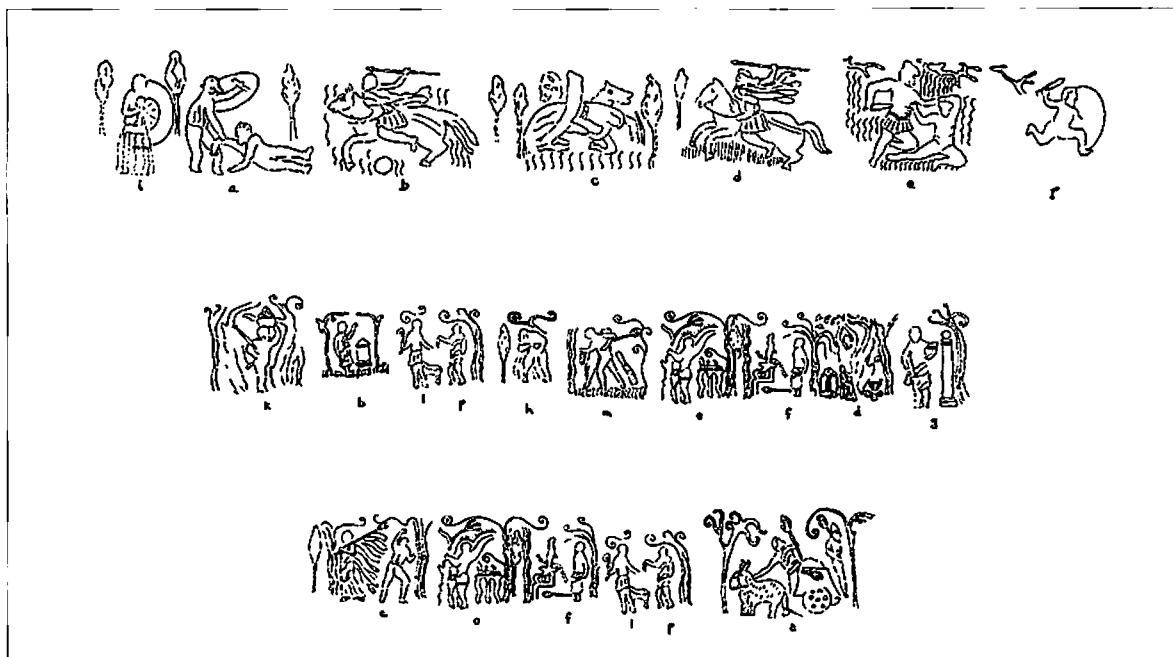 i a b c d e f
k b l p h m e f d g
c o f l p a